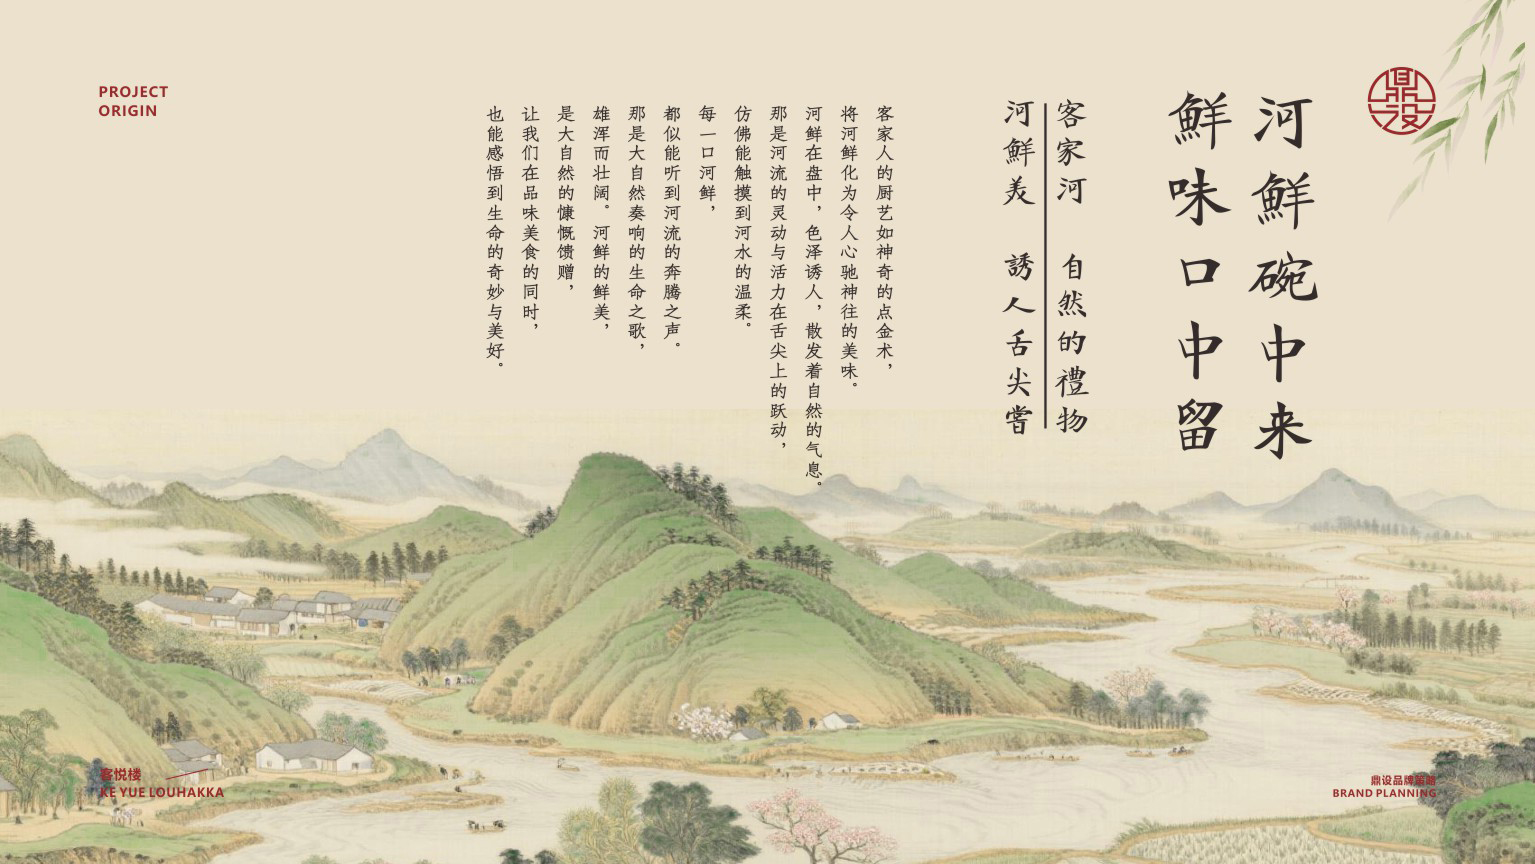 PROJECT
ORIGIN
鼎设
河鮮碗中来
鮮味口中留
客家河 自然的禮物
河鮮美 誘人舌尖嘗
客家人的厨艺如神奇的点金术，
将河鲜化为令人心驰神往的美味。
河鲜在盘中，色泽诱人，散发着自然的气息。
那是河流的灵动与活力在舌尖上的跃动，
仿佛能触摸到河水的温柔。
每一口河鲜，
都似能听到河流的奔腾之声。
那是大自然奏响的生命之歌，
雄浑而壮阔。河鲜的鲜美，
是大自然的慷慨馈赠，
让我们在品味美食的同时，
也能感悟到生命的奇妙与美好。
客悦楼
KE YUE LOUHAKKA
鼎设品牌策略
BRAND PLANNING